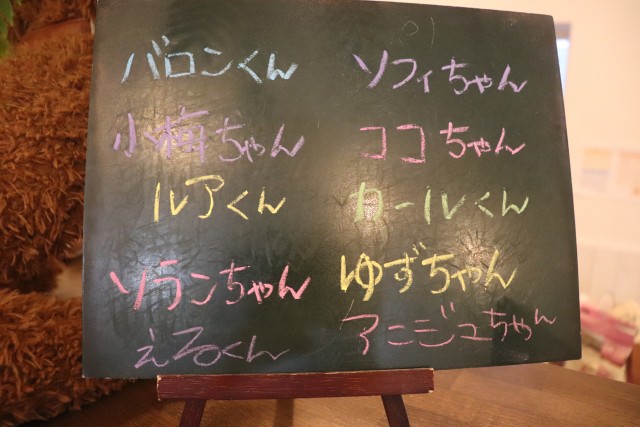 バロンくん
ソフィちゃん
小梅ちゃん
ココちゃん
ルアくん
カールくん
ソランちゃん
ゆずちゃん
えるくん
アニジュちゃん